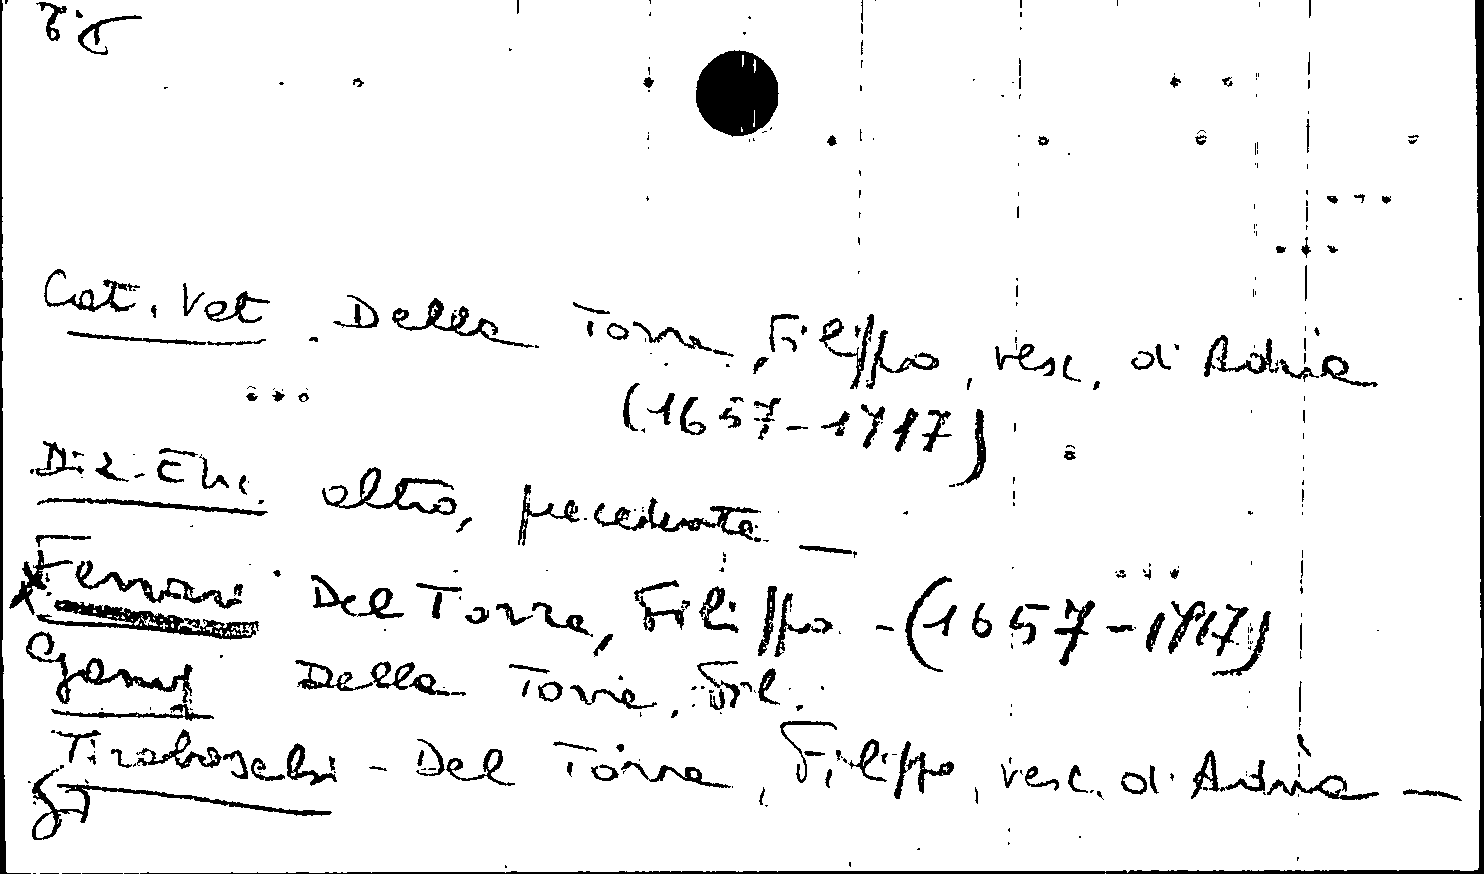 Cat. Vat. Della Torre, Filippo, vesc. di Adria
(1657-1717)
Diz. Enc. altro, precedente —
Ferrari Del Torre, Filippo - (1657-1717)
Gams Della Torre, Fil.
Tiraboschi - Del Torre, Filippo, vesc. di Adria —